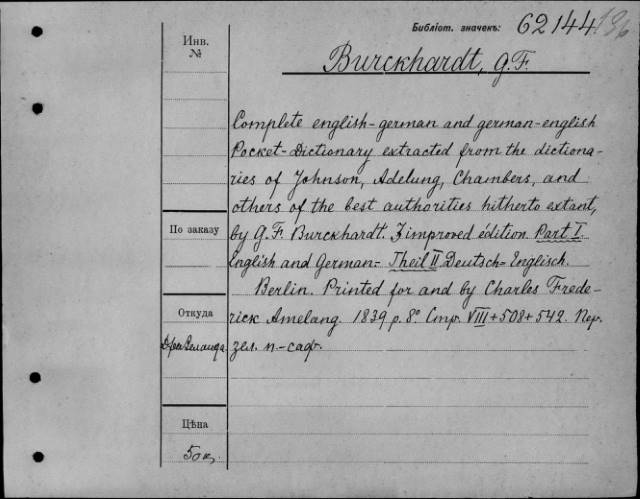 Библіот. значекъ: 62144
Инв. №
Burckhardt, G.F.
Complete english-german and german-english
Pocket-Dictionary extracted from the dictiona-
ries of Johnson, Adelung, Chambers, and
others of the best authorities hitherto extant,
by G.F. Burckhardt. 3 improved édition. Part I.
English and German.- Theil II Deutsch-Englisch.
Berlin. Printed for and by Charles Frede-
rick Amelang. 1839 р. 8º. Стр. VIII+508+542. Пер.
зел. п.-саф.
По заказу
Откуда
Цѣна
50 к.